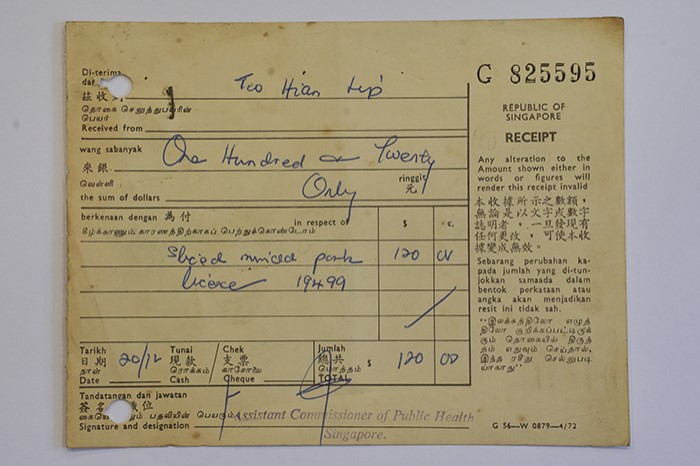 Di-terima
dari
Teo Hian Lip
茲收
தொகை செலுத்துபவரின்
பெயர்
Received from
wang sabanyak
One Hundred & Twenty
來銀
ringgit
வெள்ளி
Only
元
the sum of dollars
berkenaan dengan 為付
in respect of
$ c.
கீழ்க்காணும் காரணத்திற்காகப் பெற்றுக்கொண்டோம்
Sliced minced pork 120 00
licence 19499
Tarikh Tunai Chek Jumlah
日期 20/12 現款 支票 總共
நாள் ரொக்கம் காசோலை பொத்தம் $ 120 00
Date Cash Cheque TOTAL
Tandatangan dan jawatan
簽名 職位
Signature and designation
Assistant Commissioner of Public Health
Singapore.
G 825595
REPUBLIC OF
SINGAPORE
RECEIPT
Any alteration to the
Amount shown either in
words or figures will
render this receipt invalid
本收據所示之數額，
無論是以文字或數字
誌明者，一旦發現有
任何更改，可使本收
據變成無效。
Sebarang perubahan ka-
pada jumlah yang di-tun-
jokkan samaada dalam
bentok perkataan atau
angka akan menjadikan
resit ini tidak sah.
"இலக்கத்திலோ எழுத்
திலோ குறிக்கப்பட்டிருக்
கும் தொகையில் திருத்
தம் எதுவும் செய்தால்,
இந்த ரசீது செல்லுபடி
யாகாது"
G 56—W 0879—4/72